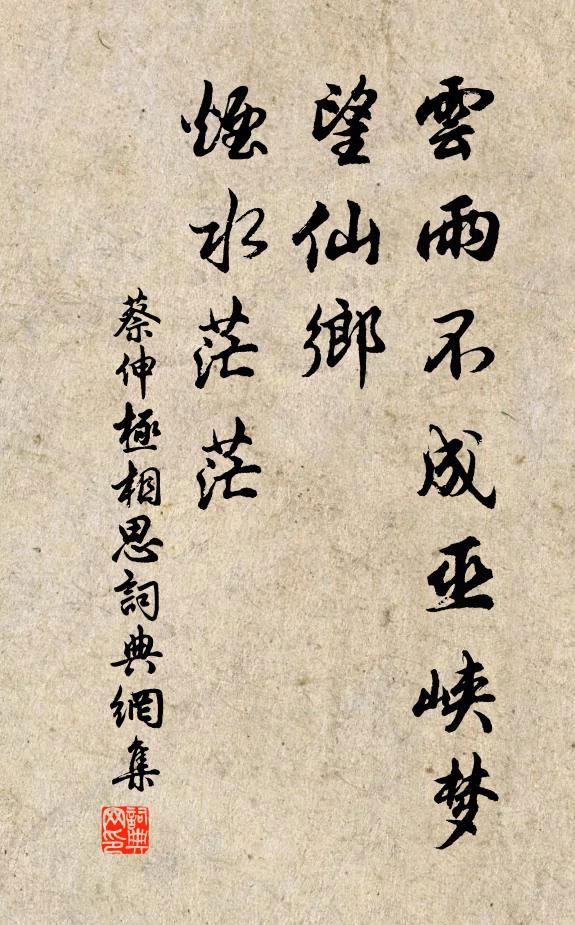 雲雨不成巫峽梦
望仙鄉
煙水茫茫
蔡伸極相思詞典網集
詞典网印